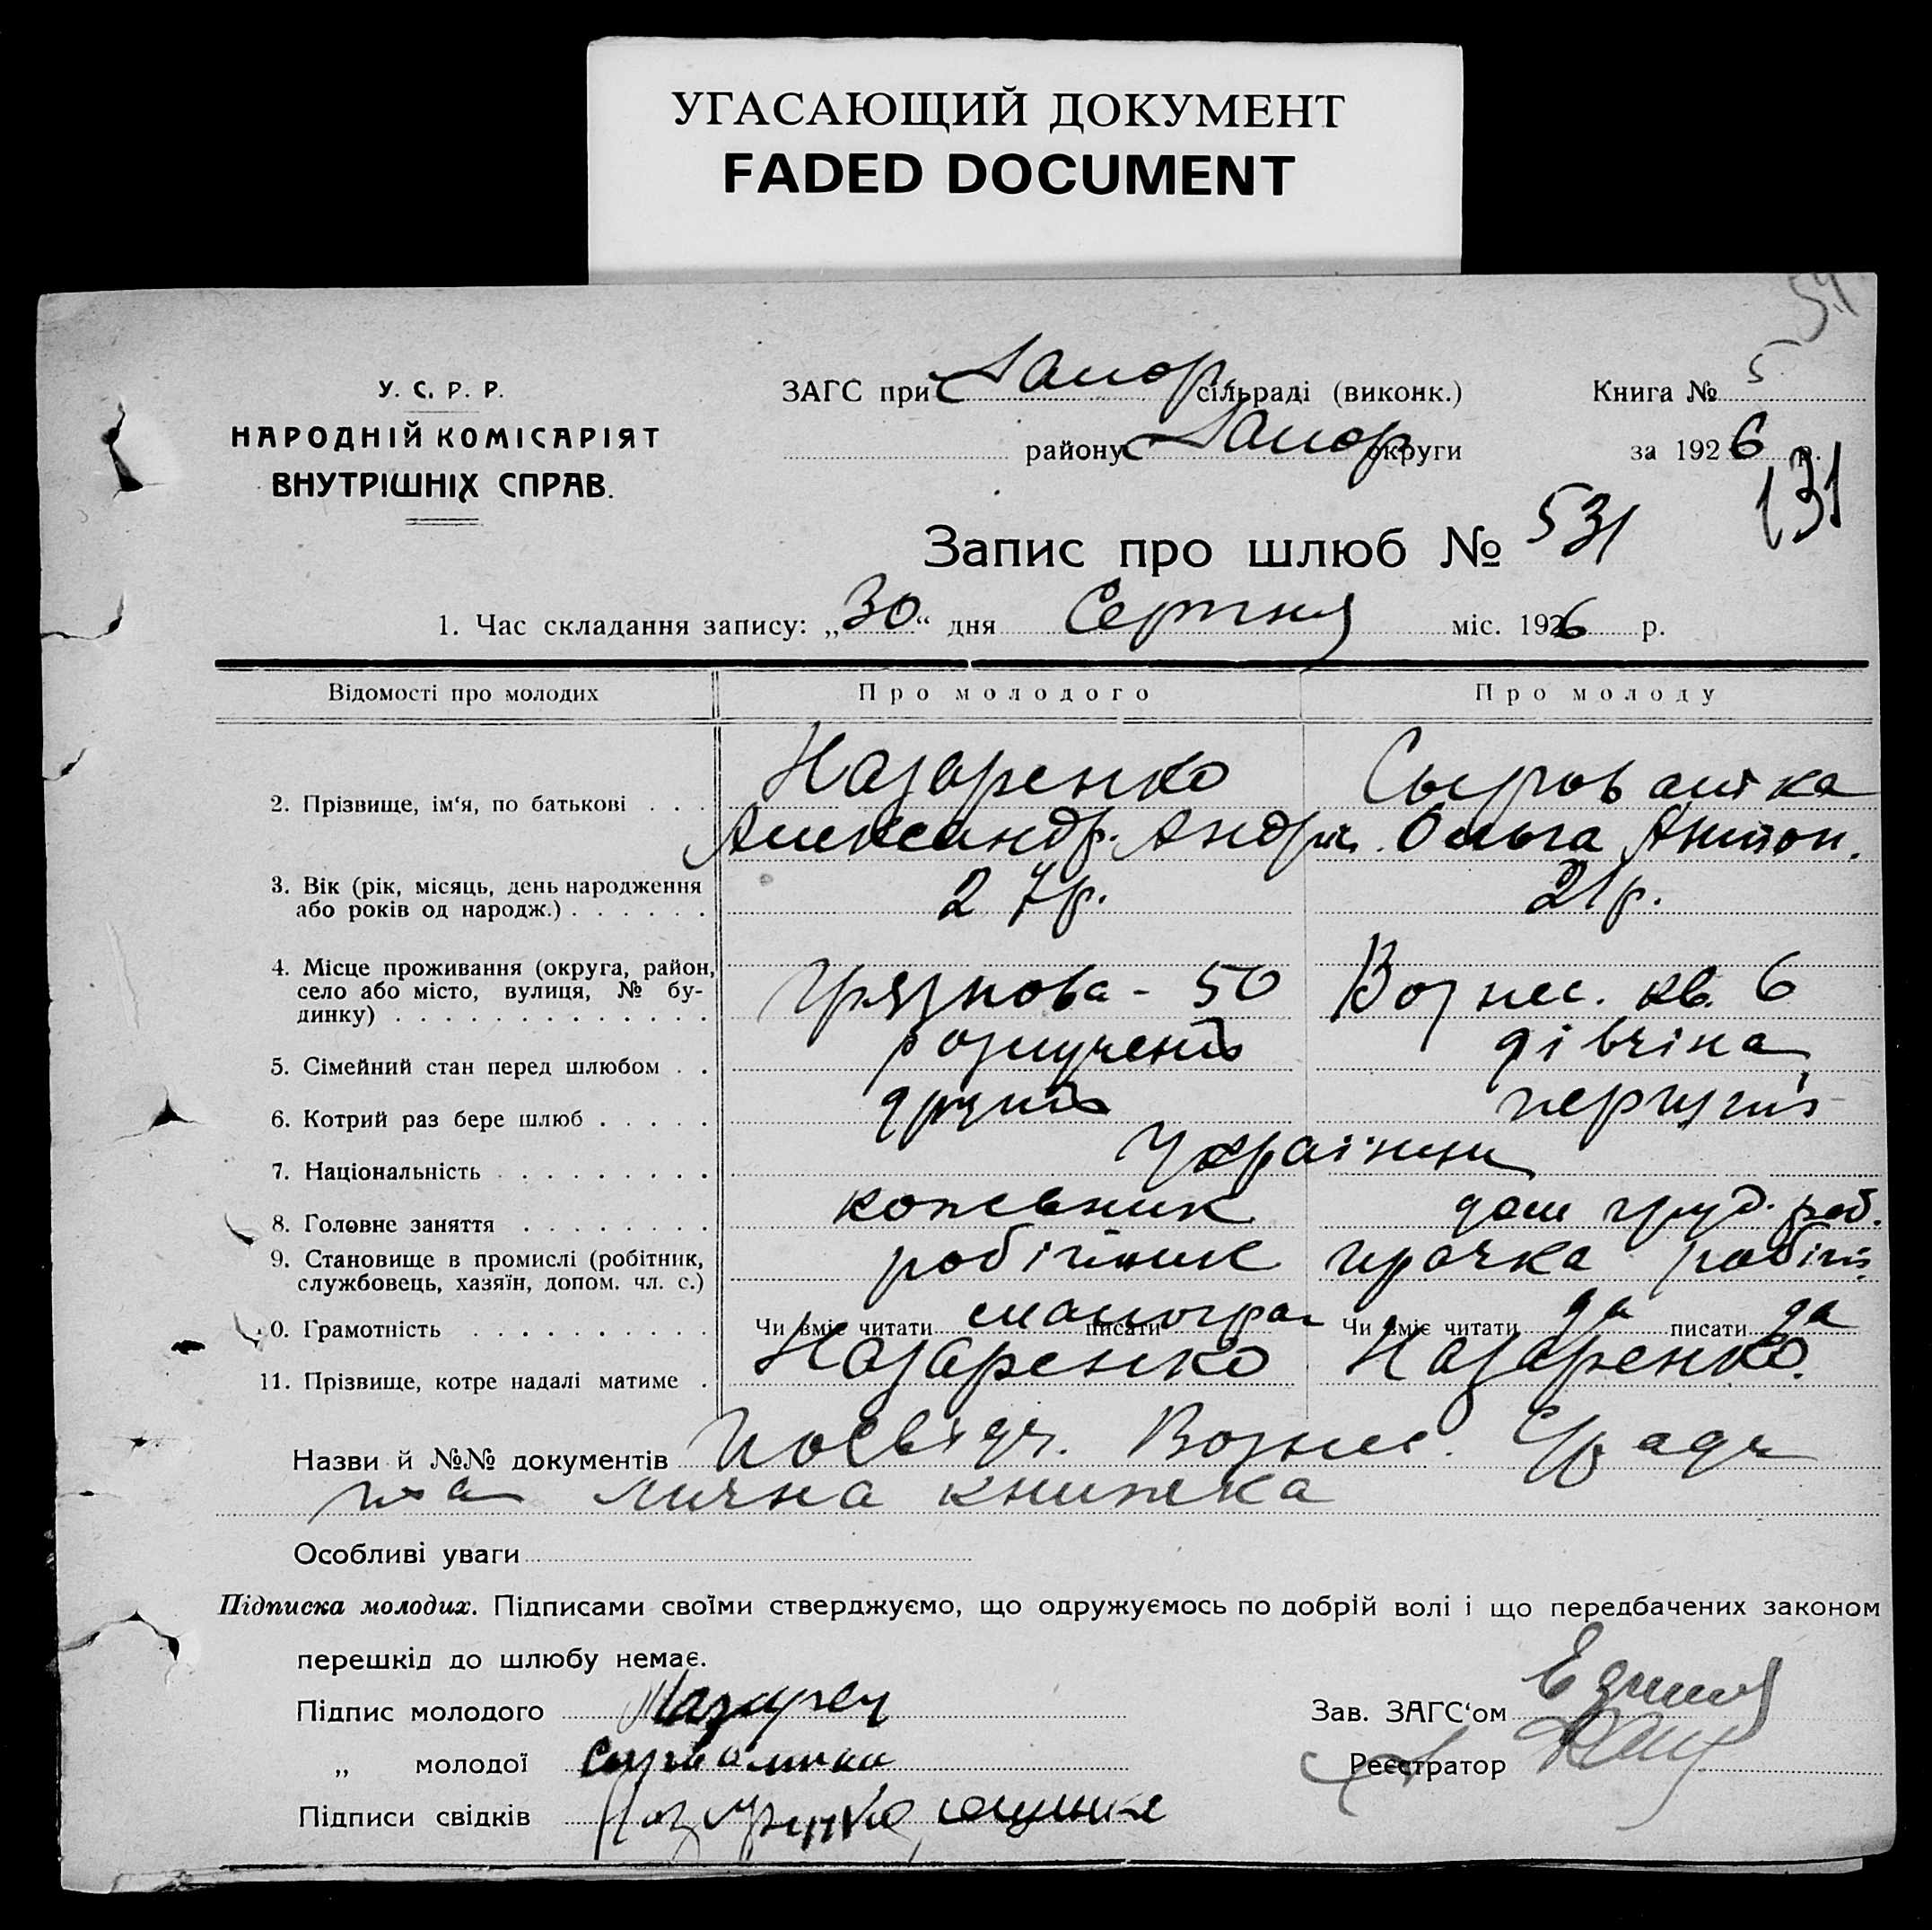 УГАСАЮЩИЙ ДОКУМЕНТ
FADED DOCUMENT
54
У. С. Р. Р.
НАРОДНІЙ КОМІСАРІЯТ
ВНУТРІШНІХ СПРАВ.
ЗАГС при Запор. сільраді (виконк.)
району Запор округи
Книга № 5
за 1926 р.
131
Запис про шлюб № 531
1. Час складання запису: „30“ дня Серпня міс. 1926 р.
Відомості про молодих Про молодого Про молоду
2. Прізвище, ім‘я, по батькові . . . Назаренко Сыроватка
Александр. Андр. Ольга Антон.
3. Вік (рік, місяць, день народження або років од народж.) . . . . . . 27р. 21р.
4. Місце проживання (округа, район, село або місто, вулиця, № будинку) . . . . . . . . . . . . . Грязнова - 50 Вознес. кв. 6
5. Сімейний стан перед шлюбом . . розлучений дівчіна
6. Котрий раз бере шлюб . . . . . другий перший
7. Національність . . . . . . . . . Українци
8. Головне заняття . . . . . . . . кожевник дом груд. роб.
9. Становище в промислі (робітник, службовець, хазяїн, допом. чл. с.) робітник прачка робіт.
0. Грамотність . . . . . . . . . . Чи вміє читати малогра писати Чи вміє читати да писати да
11. Прізвище, котре надалі матиме . Назаренко Назаренко.
Назви й №№ документів Посвідч. Вознес.
та лична книжка
Особливі уваги
Підписка молодих. Підписами своїми стверджуємо, що одружуємось по добрій волі і що передбачених законом
перешкід до шлюбу немає.
Підпис молодого Назарен
„ молодої Сыроватка
Підписи свідків Назаренко,
Зав. ЗАГС‘ом
Реєстратор